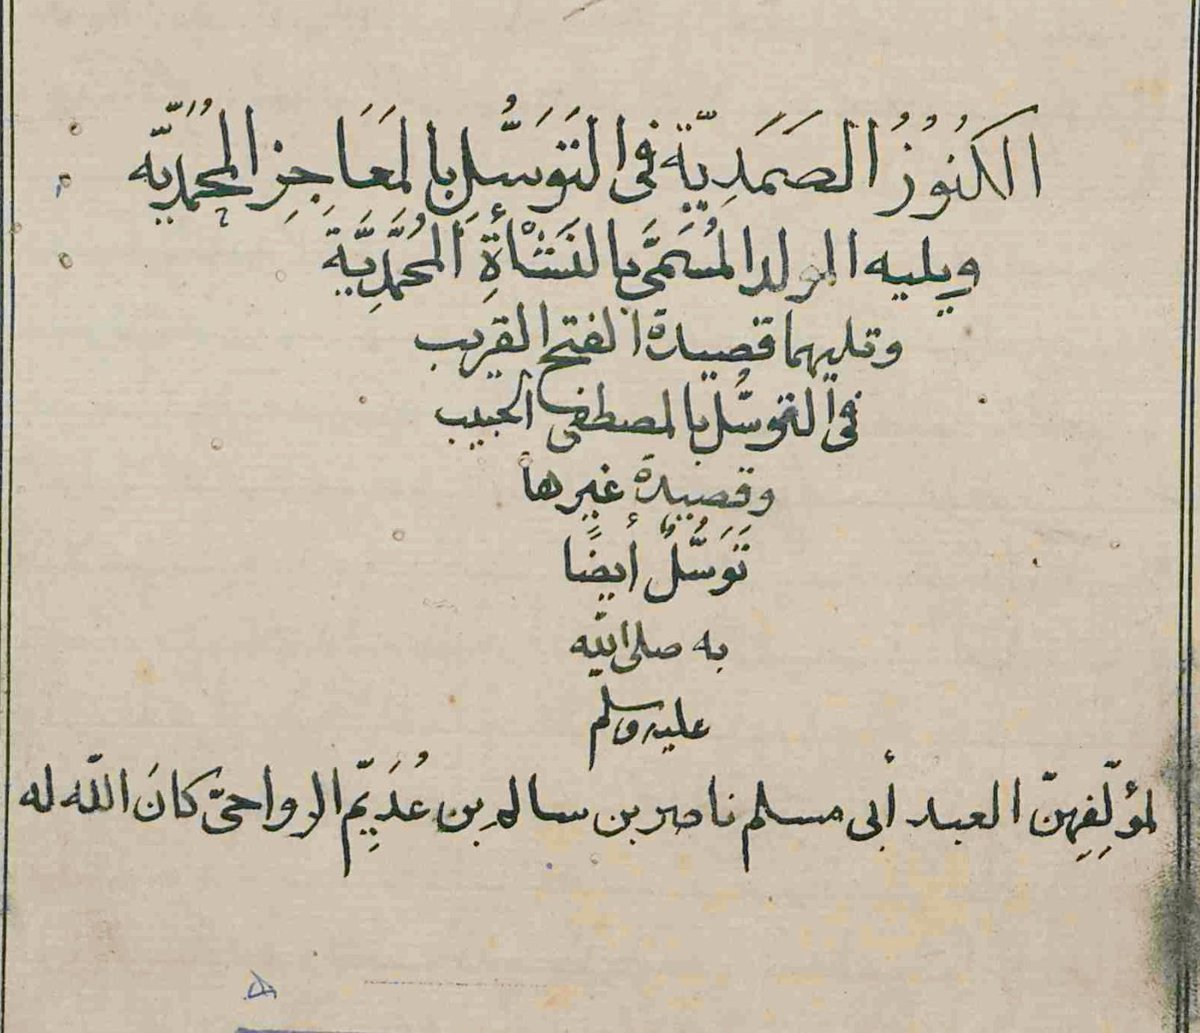 الكنُوُزُ الصَمَدِيّة في التَوَسُّل بالمَعَاجِزِ المُحَمَّديّه
ويليه المولد المُسَمَّى بالنَشْأَةِ المُحُمَّدِيَّةَ
وتليهما قصيدة الفتح القريب
في التوسُّل بالمصطفى الحبيب
وقصيدة غيرها
تَوَسُّلٌ أيضًا
به صلى الله
عليه وسلم
لمؤلّفِهِنّ العبد أبى مسلم ناصر بن سالم بن عُدَيِّم الرواحىّ كانَ اللّه له